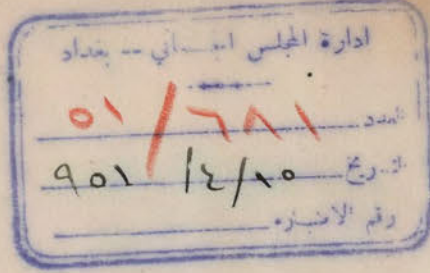 ادارة المجلس الجسماني -- بغداد
العدد ٥١/٦٨١
التاريخ ٩٥١/٤/١٥
رقم الاضباره